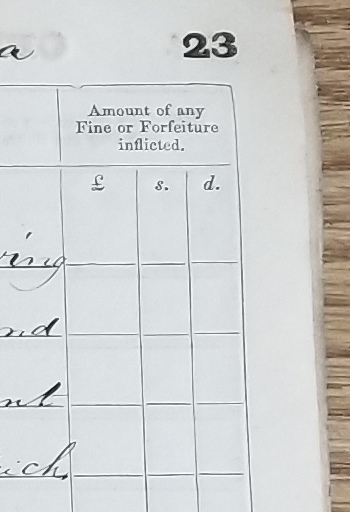 a 23
Amount of any
Fine or Forfeiture
inflicted.
£ s. d.
ring
nd
nt
ich